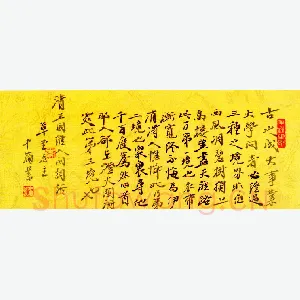 古今之成大事業
大學問者必經過
三種之境界昨夜
西風凋碧樹獨上
高樓望盡天涯路
此第一境也衣帶
漸寬終不悔為伊
消得人憔悴此第
二境也眾裡尋他
千百度驀然回首
那人卻在燈火闌珊
處此第三境也
清王國維人間詞話